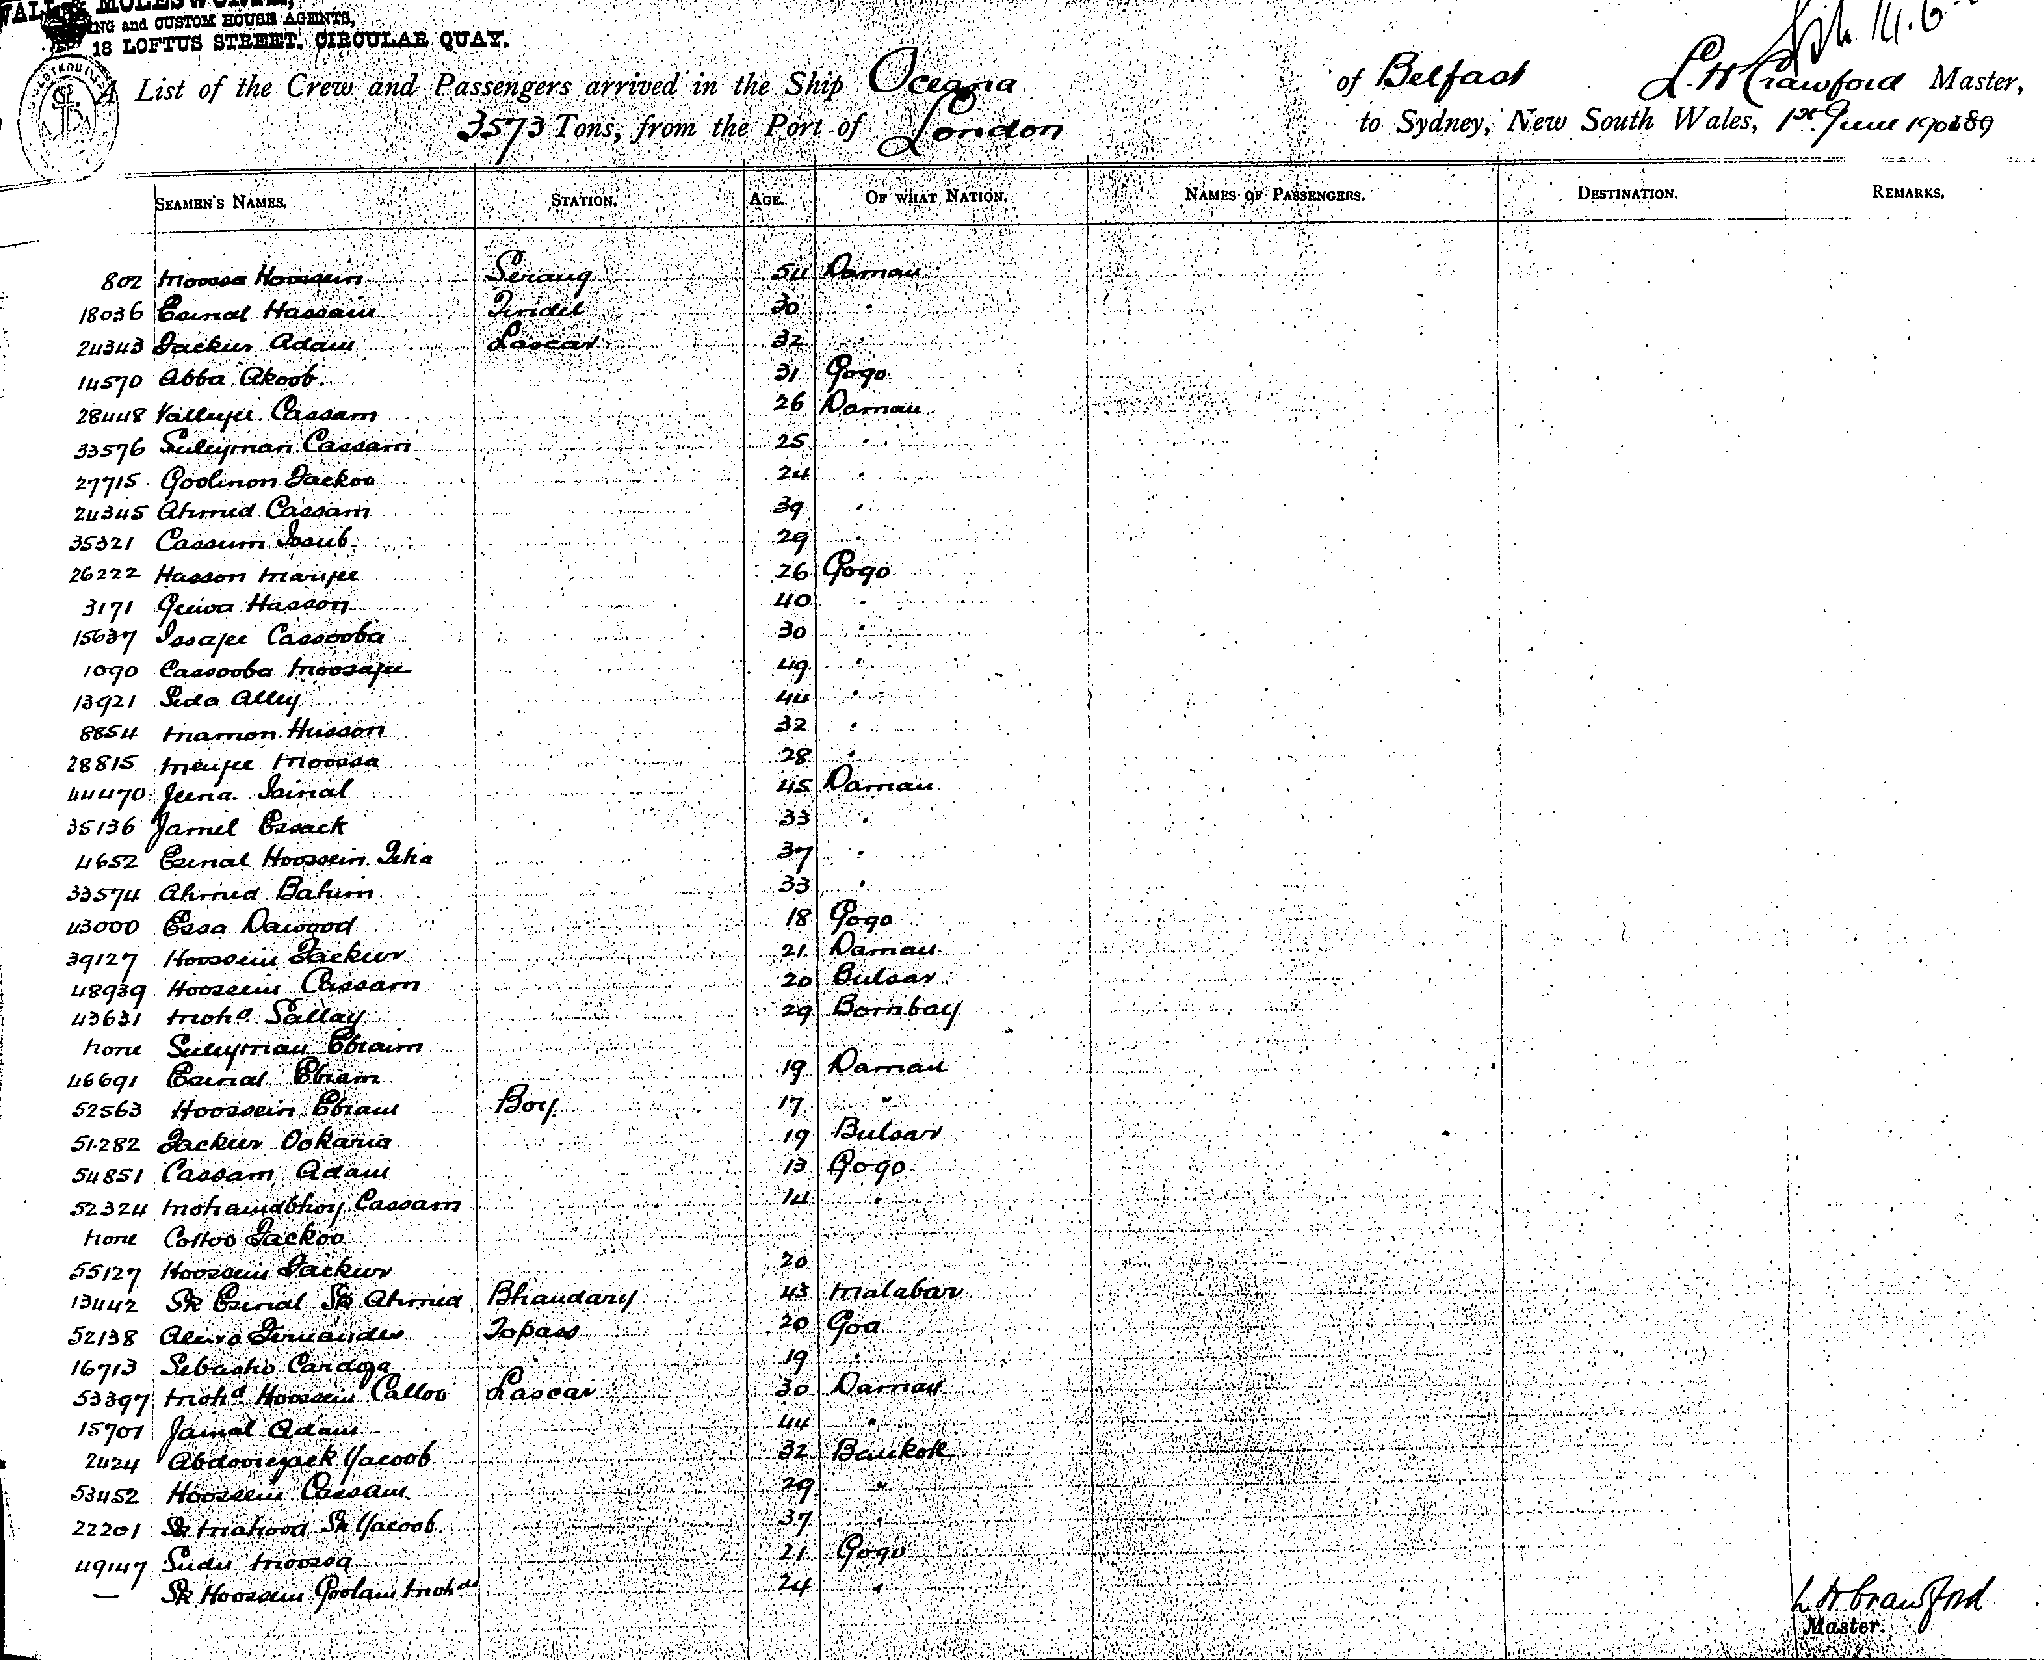 MOLESWORTH,
ING and CUSTOM HOUSE AGENTS,
18 LOFTUS STREET. CIRCULAR QUAY.
A List of the Crew and Passengers arrived in the Ship Oceana of Belfast L. H Crawford Master,
3573 Tons, from the Port of London to Sydney, New South Wales, 1st June 1889
SEAMEN'S NAMES. STATION. AGE. OF WHAT NATION. NAMES OF PASSENGERS. DESTINATION. REMARKS.
802 Moossa Hoossein Serang 54 Daman
18036 Esinal Hassain Tindel 30 "
24343 Jackur Adam Lascar 32
14570 Abba Akoob 31 Gogo
28448 Valleyjee Cassam 26 Daman
33576 Suleyman Cassam 25 "
27715 Goolmon Jackoo 24 "
24345 Ahmed Cassam 39 "
35321 Cassum Issub 29
26222 Hasson Manjee 26 Gogo
3171 Geiva Hasson 40 "
15637 Issajee Cassooba 30 "
1090 Cassooba Moosajee 49 "
13921 Sida Alley 44 "
8854 Mamon Husson 32 "
28815 Menjee Moossa 28 "
44470 Jeena Jainal 45 Daman
35136 Jamel Essack 33 "
4652 Esinal Hoossein Isha 37 "
33574 Ahmed Bahim 33 "
43000 Essa Dawood 18 Gogo
39127 Hoossein Jackur 21 Daman
48939 Hoossein Cassam 20 Bulsar
43631 Mohd Sallay 29 Bombay
None Suleyman Ebraim
46691 Esinal Ebram 19 Daman
52563 Hoossein Ebram Boy 17 "
51282 Jackur Ookaria 19 Bulsar
54851 Cassam Adam 13 Gogo
52324 Mohamedbhoy Cassam 14 "
None Cottoo Jackoo
55127 Hoossein Jackur 20
13442 Sk Esinal Sk Ahmed Bhandary 43 Malabar
52138 Fernandes Topass 20 Goa
16713 Sebastio Cardoza 19 "
53397 Mohd Hoossein Calloo Lascar 30 Daman
15701 Jainal Adam 44 "
2424 Abdoorezack Yacoob 32 Bankok
53452 Hoossein Cassam 29 "
22201 Sk Mahood Sk Yacoob 37 "
49147 Sudu Moossa 21 Gogo
— Sk Hoossein Goolam Mohd 24 "
L H Crawford
Master.